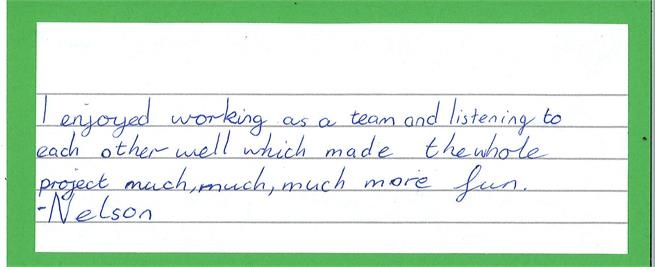 I enjoyed working as a team and listening to
each other well which made the whole
project much, much, much more fun.
-Nelson